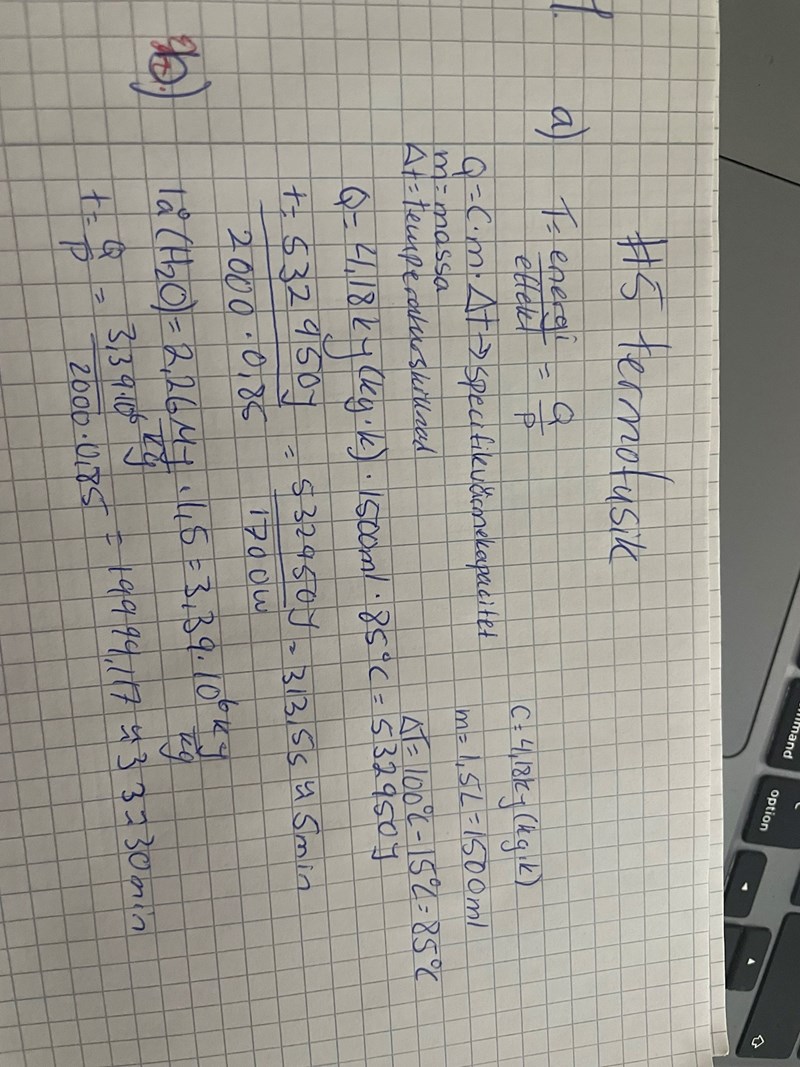 #5 termofysik
1.
a) T = energi/effekt = Q/P
C = 4,18 kJ/(kg·K)
Q = C·m·Δt → specifikvärmekapacitet
m = massa
m = 1,5L = 1500ml
Δt = temperaturskillnad
ΔT = 100°C - 15°C = 85°C
Q = 4,18kJ/(kg·K) · 1500ml · 85°C = 532950J
t = 532950J / 2000·0,85 = 532950J / 1700W = 313,5s ≈ 5min
b)
lå(H2O) = 2,26MJ/kg · 1,5 = 3,39·10^6 kJ/kg
t = Q/P = 3,39·10^6 kJ/kg / 2000·0,85 = 1994,117 ≈ 33 ≈ 30min
command
option